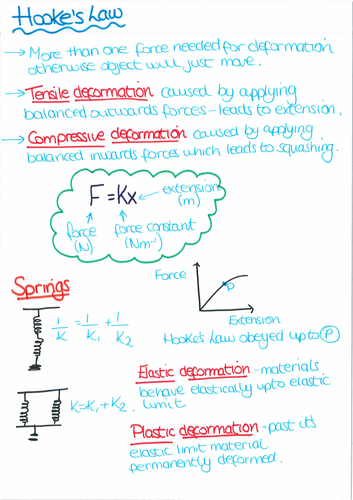 Hooke's Law
→ More than one force needed for deformation
otherwise object will just move.
→ Tensile deformation caused by applying
balanced outwards forces - leads to extension.
→ Compressive deformation caused by applying
balanced inwards forces which leads to squashing.
F = Kx ← extension
(m)
force
(N)
force constant
(Nm⁻¹)
Force
P
Extension
Springs
1/K = 1/K₁ + 1/K₂
Hooke's Law obeyed up to P
Elastic deformation - materials
behave elastically upto elastic
limit
K = K₁ + K₂
Plastic deformation - past it's
elastic limit material
permanently deformed.